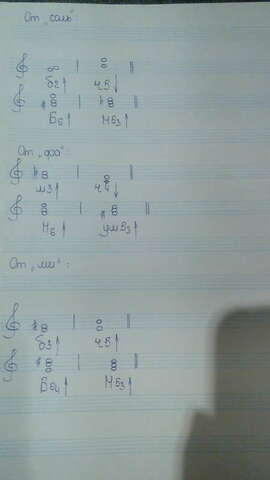 От „соль":
б2↑ ч.5↓
Б6↑ Мб3↑
От „фа":
м3↑ ч.4↓
М6↑ ум5/3↑
От „ми":
б3↑ ч.5↑
Б6/4↑ М5/3↑